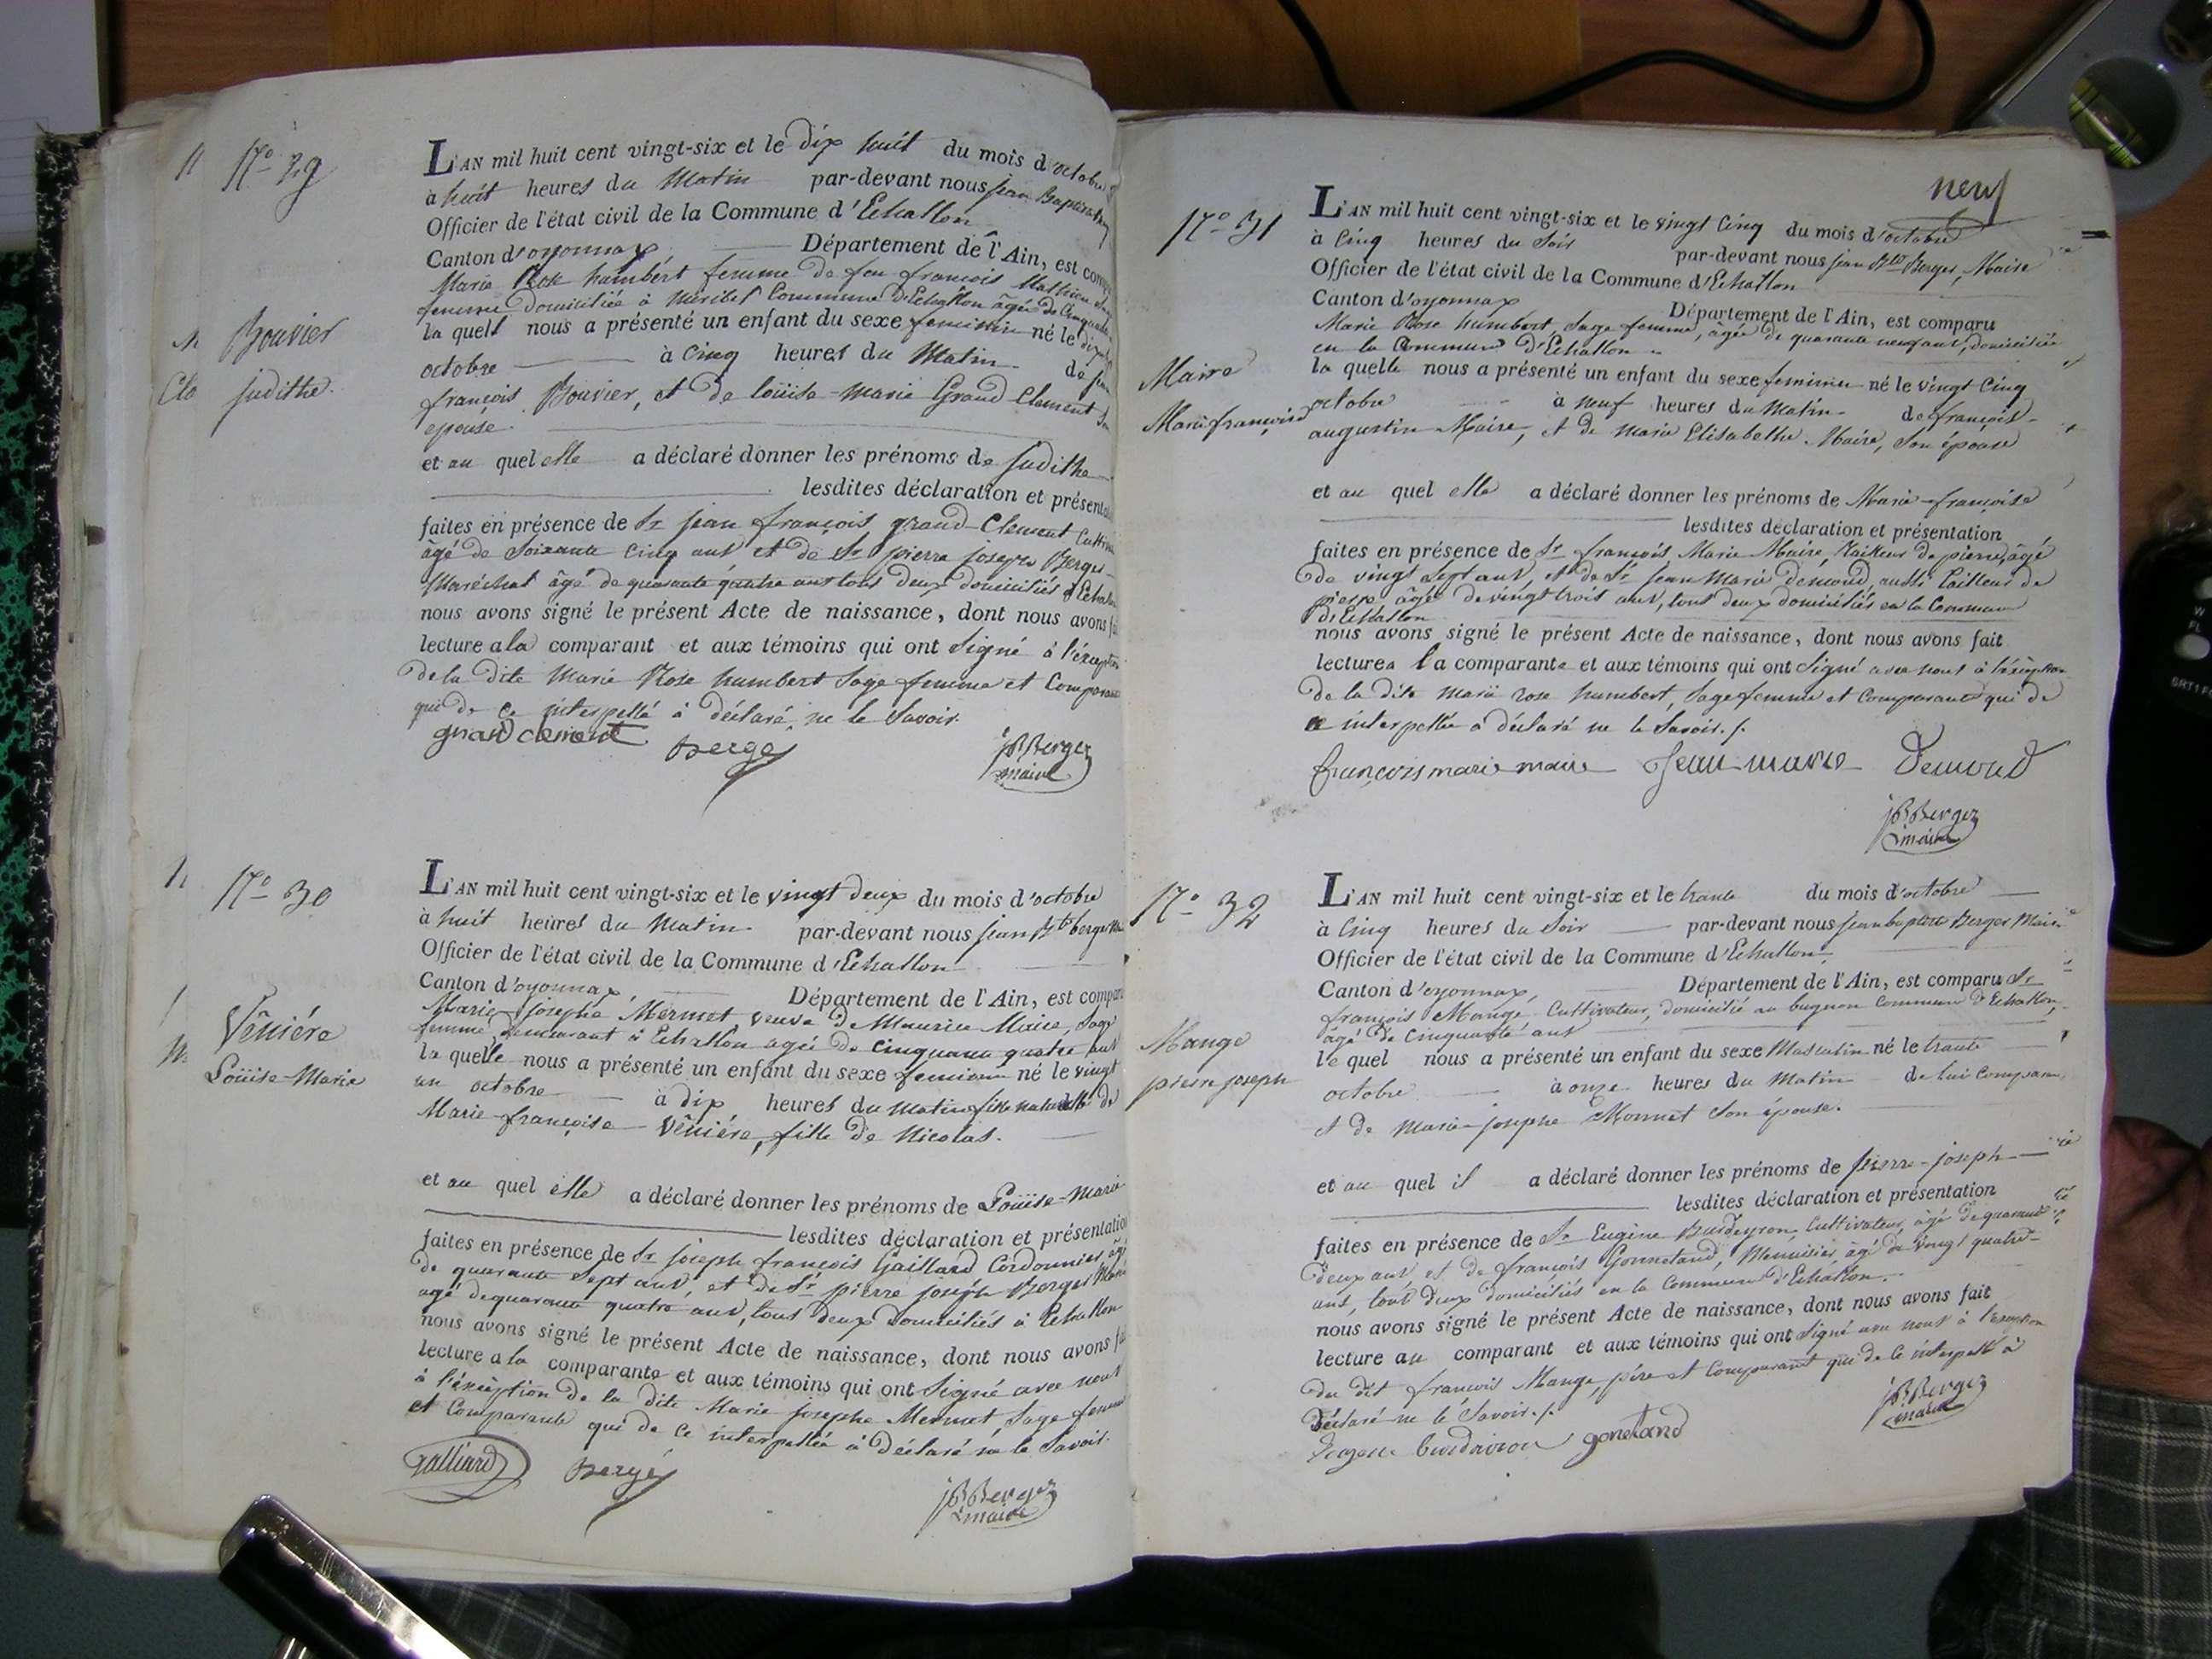 N.o 29
L'AN mil huit cent vingt-six et le dix huit du mois d'octobre
à huit heures du Matin par-devant nous jean Baptiste
Officier de l'état civil de la Commune d'Echallon
Canton d'oyonnax Département de l'Ain, est
Marie Rose humbert femme de feu françois Mathieu
femme domiciliée à Miribel Commune d'Echallon âgée de
la quelle nous a présenté un enfant du sexe feminin né le
Bouvier
judithe
octobre à cinq heures du Matin de
françois Bouvier, et de loüise-marie Grand-Clement
epouse.
et au quel elle a déclaré donner les prénoms de judithe
lesdites déclaration et
faites en présence de Sr jean françois grand-Clement
âgé de soixante cinq ans et de Sr pierre joseph Berger
Maréchal âgé de quarante quatre ans tous deux domiciliés à
nous avons signé le présent Acte de naissance, dont nous avons
lecture a la comparant et aux témoins qui ont signé à l'exception
de la dite Marie Rose humbert sage femme et
qui de ce interpellé à déclaré ne le savoir.
grand clement Berger JB Berger
maire
N.o 30
L'AN mil huit cent vingt-six et le vingt deux du mois d'octobre
à huit heures du Matin par-devant nous jean Bte berger
Officier de l'état civil de la Commune d'Echallon
Canton d'oyonnax, Département de l'Ain, est
Marie josephe Mermet veuve de Maurice Maire, sage
femme demeurant à Echallon agée de cinquante quatre ans
Vêniére
Loüise-Marie
la quelle nous a présenté un enfant du sexe feminin né le vingt
un octobre à dix heures du matin fille naturelle de
Marie-françoise Vêniére, fille de Nicolas.
et au quel elle a déclaré donner les prénoms de Loüise-Marie
lesdites déclaration et présentation
faites en présence de Sr joseph françois Gaillard Cordonnier, âgé
de quarante sept ans, et de Sr pierre joseph Berger
agé de quarante quatre ans, tous deux domiciliés à Echallon
nous avons signé le présent Acte de naissance, dont nous avons
lecture a la comparante et aux témoins qui ont signé avec nous
à l'exception de la dite Marie josephe Mermet, sage femme
et Comparante qui de ce interpellée à déclaré ne le savoir.
Galliard Berger
JB Berger
maire
neuf
N.o 31
L'AN mil huit cent vingt-six et le vingt cinq du mois d'octobre
à cinq heures du soir par-devant nous jean Bte Berger, Maire
Officier de l'état civil de la Commune d'Echallon
Canton d'oyonnax Département de l'Ain, est comparu
Marie Rose humbert, sage femme, âgée de quarante neuf ans, domiciliée
en la Commune d'Echallon
Maire
Marie françoise
la quelle nous a présenté un enfant du sexe feminin né le vingt cinq
octobre à neuf heures du Matin de françois-
augustin Maire, et de marie Elisabethe Maire, son épouse
et au quel elle a déclaré donner les prénoms de Marie-françoise
lesdites déclaration et présentation
faites en présence de Sr françois Marie Maire, tailleur de pierre, âgé
de vingt sept ans, et de Sr jean Marie demond, aussi tailleur de
pierre âgé de vingt trois ans, tous deux domiciliés en la Commune
d'Echallon
nous avons signé le présent Acte de naissance, dont nous avons fait
lecture a la comparante et aux témoins qui ont signé avec nous à l'exception
de la dite marie rose humbert, sage femme et comparante qui de
ce interpellée à déclaré ne le savoir./.
françois marie maire Jean marie Demond
JB Berger
maire
N.o 32
L'AN mil huit cent vingt-six et le trante du mois d'octobre
à cinq heures du soir par-devant nous jean baptiste Berger Maire
Officier de l'état civil de la Commune d'Echallon
Canton d'oyonnax, Département de l'Ain, est comparu Sr
françois Mange Cultivateur, domicilié au bugnon Commune d'Echallon,
âgé de cinquante ans
Mange
pierre joseph
le quel nous a présenté un enfant du sexe Masculin né le trante
octobre à onze heures du Matin de lui comparant
et de marie-josephe Monnet son épouse.
et au quel il a déclaré donner les prénoms de pierre-joseph
lesdites déclaration et présentation
faites en présence de Sr Eugène Burdeyron, Cultivateur, âgé de quarante
deux ans, et de françois Gonnetand, Menuisier, âgé de vingt quatre
ans, tous deux domiciliés en la Commune d'Echallon.
nous avons signé le présent Acte de naissance, dont nous avons fait
lecture au comparant et aux témoins qui ont signé avec nous à l'exception
du dit françois Mange, père et comparant qui de ce interpellé à
Déclaré ne le savoir./.
gonetand
JB Berger
maire